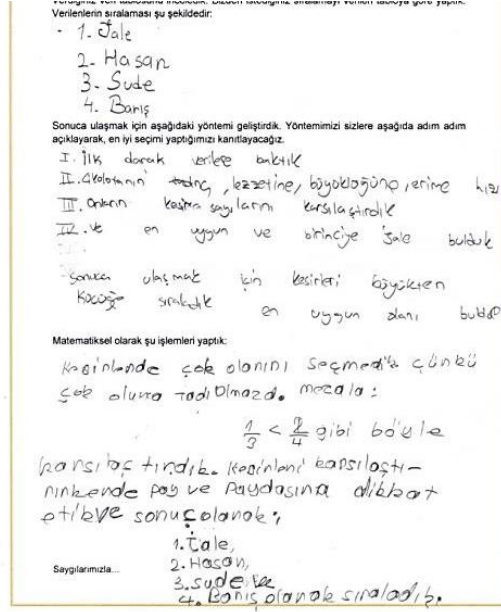 Verdiğiniz veri tablosunu inceledik. Bizden istediğiniz sıralamayı verilen tabloya göre yaptık.
Verilenlerin sıralaması şu şekildedir:
1. Jale
2. Hasan
3. Sude
4. Barış
Sonuca ulaşmak için aşağıdaki yöntemi geliştirdik. Yöntemimizi sizlere aşağıda adım adım
açıklayarak, en iyi seçimi yaptığımızı kanıtlayacağız.
I. İlk olarak verilere baktık
II. Çikolatanın tadına, lezzetine, büyüklüğüne, erime hızı
III. Onların kesir sayılarını karşılaştırdık
IV. Ve en uygun ve birinciye Jale bulduk
Sonuca ulaşmak için kesirleri büyükten
küçüğe sıraladık en uygun olanı bulduk
Matematiksel olarak şu işlemleri yaptık:
Kesirlende çok olanını seçmedik çünkü
çok olursa tadı olmazdı. mesela:
1/3 < 2/4 gibi böyle
karsılaştındık. Kesinleni karsılaştı-
nınkende pay ve paydasına dikkat
etik ve sonuç olanak;
1. Cale,
2. Hasan,
Saygılarımızla...
3. sude ve
4. Banış olanak sınaladık.